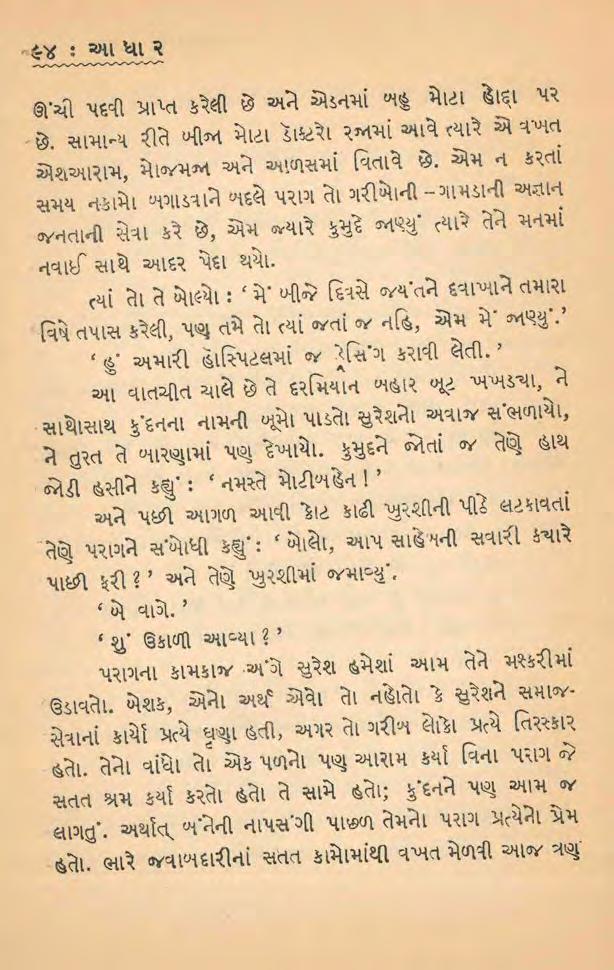 ૯૪ : આ ધા ર
ઊંચી પદવી પ્રાપ્ત કરેલી છે અને એડનમાં બહુ મોટા હોદ્દા પર
છે. સામાન્ય રીતે બીજા મોટા ડૉક્ટરો રજામાં આવે ત્યારે એ વખત
એશઆરામ, મોજમજા અને આળસમાં વિતાવે છે. એમ ન કરતાં
સમય નકામો બગાડવાને બદલે પરાગ તો ગરીબોની – ગામડાની અજ્ઞાન
જનતાની સેવા કરે છે, એમ જ્યારે કુમુદે જાણ્યું ત્યારે તેને મનમાં
નવાઈ સાથે આદર પેદા થયો.
ત્યાં તો તે બોલ્યો : ‘ મેં બીજે દિવસે જયંતને દવાખાને તમારા
વિષે તપાસ કરેલી, પણ તમે તો ત્યાં જતાં જ નહિ, એમ મેં જાણ્યું.’
‘ હું અમારી હૉસ્પિટલમાં જ ડ્રેસિંગ કરાવી લેતી. ’
આ વાતચીત ચાલે છે તે દરમિયાન બહાર બૂટ ખખડ્યા, ને
સાથોસાથ કુંદનના નામની બૂમો પાડતો સુરેશનો અવાજ સંભળાયો,
ને તુરત તે બારણામાં પણ દેખાયો. કુમુદને જોતાં જ તેણે હાથ
જોડી હસીને કહ્યું : ‘ નમસ્તે મોટીબહેન ! ’
અને પછી આગળ આવી કોટ કાઢી ખુરશીની પીઠે લટકાવતાં
તેણે પરાગને સંબોધી કહ્યું : ‘ બોલો, આપ સાહેબની સવારી ક્યારે
પાછી ફરી ? ’ અને તેણે ખુરશીમાં જમાવ્યું.
‘ બે વાગે. ’
‘ શું ઉકાળી આવ્યા ? ’
પરાગના કામકાજ અંગે સુરેશ હમેશાં આમ તેને મશ્કરીમાં
ઉડાવતો. બેશક, એનો અર્થ એવો તો નહોતો કે સુરેશને સમાજ-
સેવાનાં કાર્યો પ્રત્યે ઘૃણા હતી, અગર તો ગરીબ લોકો પ્રત્યે તિરસ્કાર
હતો. તેનો વાંધો તો એક પળનો પણ આરામ કર્યા વિના પરાગ જે
સતત શ્રમ કર્યા કરતો હતો તે સામે હતો; કુંદનને પણ આમ જ
લાગતું. અર્થાત્ બંનેની નાપસંગી પાછળ તેમનો પરાગ પ્રત્યેનો પ્રેમ
હતો. ભારે જવાબદારીનાં સતત કામોમાંથી વખત મેળવી આજ ત્રણ